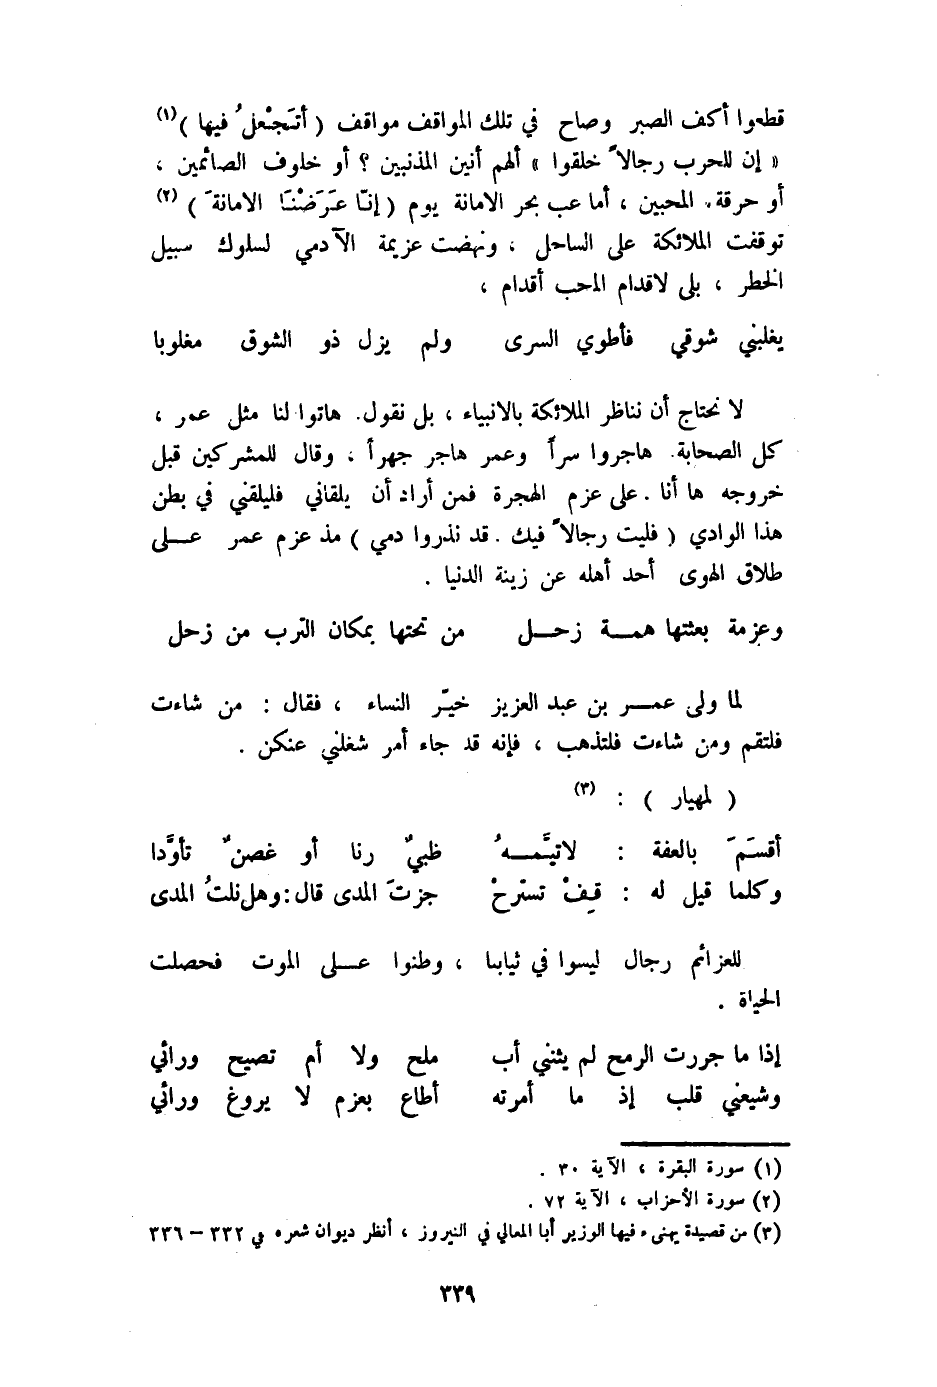 قطعوا أكف الصبر وصاح في تلك المواقف مواقف ( أتَجْعلُ فيها )(١)
« إن للحرب رجالاً خلقوا » ألهم أنين المذنبين ؟ أو خلوف الصائمين ،
أو حرقة . المحبين ، أما عب بحر الامانة يوم ( إنّا عَرَضْنَا الامانةَ ) (٢)
توقفت الملائكة على الساحل ، ونهضت عزيمة الآدمي لسلوك سبيل
الخطر ، بلى لاقدام المحب أقدام ،
يغلبني شوقي فأطوي السرى ولم يزل ذو الشوق مغلوبا
لا نحتاج أن نناظر الملائكة بالانبياء ، بل نقول . هاتوا لنا مثل عمر ،
كل الصحابة . هاجروا سراً وعمر هاجر جهراً ، وقال للمشركين قبل
خروجه ها أنا . على عزم الهجرة فمن أراد أن يلقاني فليلقني في بطن
هذا الوادي ( فليت رجالاً فيك . قد نذروا دمي ) مذ عزم عمر عــلى
طلاق الهوى أحد أهله عن زينة الدنيا .
وعزمة بعثتها همــة زحــل من تحتها بمكان الترب من زحل
لما ولى عمــر بن عبد العزيز خيّر النساء ، فقال : من شاءت
فلتقم ومن شاءت فلتذهب ، فإنه قد جاء أمر شغلني عنكن .
( لمهيار ) : (٣)
أقسَمَ بالعفة : لاتيَّمــهُ ظبيٌ رنا أو غصنٌ تأوَّدا
وكلما قيل له : قِفْ تسترحْ جزتَ المدى قال : وهل نلتُ المدى
للعزائم رجال ليسوا في ثيابنا ، وطنوا عــلى الموت فحصلت
الحياة .
إذا ما جررت الرمح لم يثنني أب ملح ولا أم تصيح ورائي
وشيعني قلب إذ ما أمرته أطاع بعزم لا يروغ ورائي
(١) سورة البقرة ، الآية ٣٠ .
(٢) سورة الأحزاب ، الآية ٧٢ .
(٣) من قصيدة يهنىء فيها الوزير أبا المعالي في النيروز ، أنظر ديوان شعره في ٣٣٢ – ٣٣٦
٣٣٩